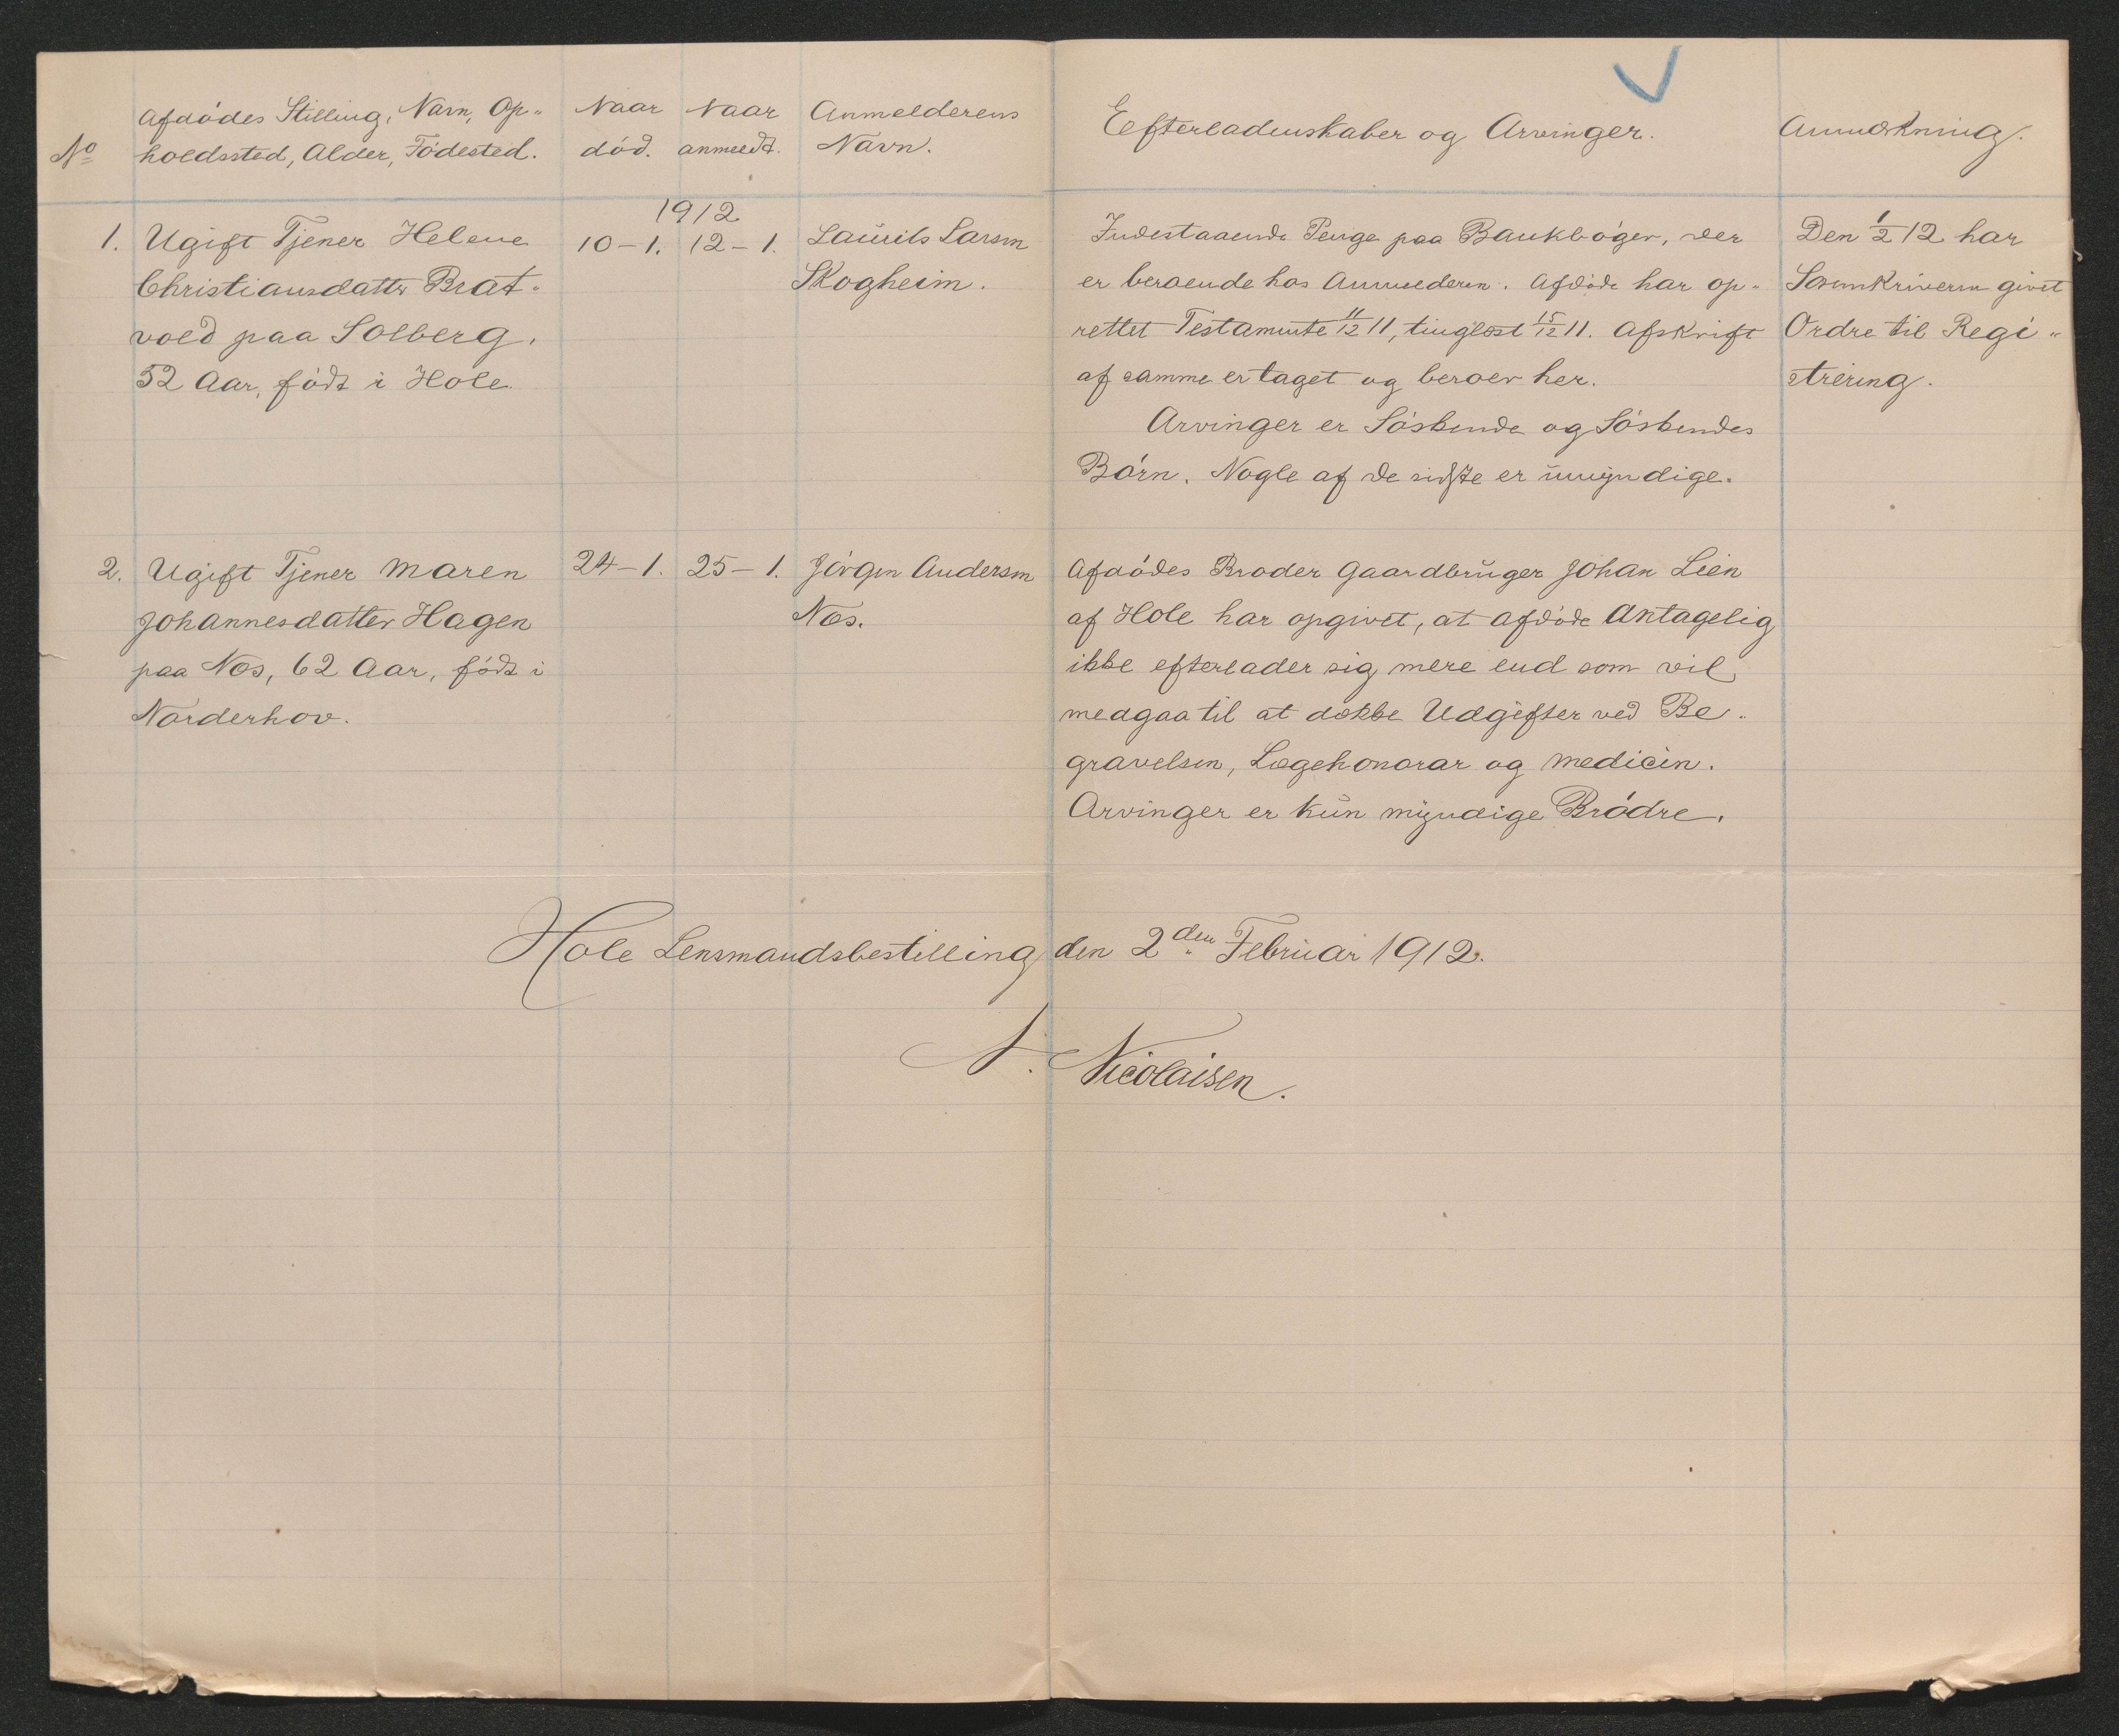 No
Afdødes Stilling, Navn, Op-
holdssted, Alder, Fødested.
Naar
død.
Naar
anmeldt.
Anmelderens
Navn.
Efterladenskaber og Arvinger.
Anmærkning.
1912
1.
Ugift Tjener Helene
Christiansdatter Brat-
vold paa Solberg,
52 Aar, født i Hole.
10-1.
12-1.
Laurits Larsen
Skogheim.
Indestaaende Penge paa Bankbøger, der
er beroende hos Anmelderen. Afdøde har op-
rettet Testamente 11/12 11, tinglæst 15/12 11. Afskrift
af samme er taget og beroer her.
Arvinger er Søskende og Søskendes
Børn. Nogle af de sidste er umyndige.
Den 1/2 12 har
Sorenskriveren givet
Ordre til Regi-
strering.
2.
Ugift Tjener Maren
Johannesdatter Hagen
paa Næs, 62 Aar, født i
Norderhov.
24-1.
25-1.
Jørgen Andersen
Næs.
Afdødes Broder Gaardbruger Johan Lien
af Hole har opgivet, at afdøde antagelig
ikke efterlader sig mere end som vil
medgaa til at dække Udgifter ved Be-
gravelsen, Lægehonorar og Medicin.
Arvinger er kun myndige Brødre.
Hole Lensmandsbestilling den 2den Februar 1912.
N. Nicolaisen.